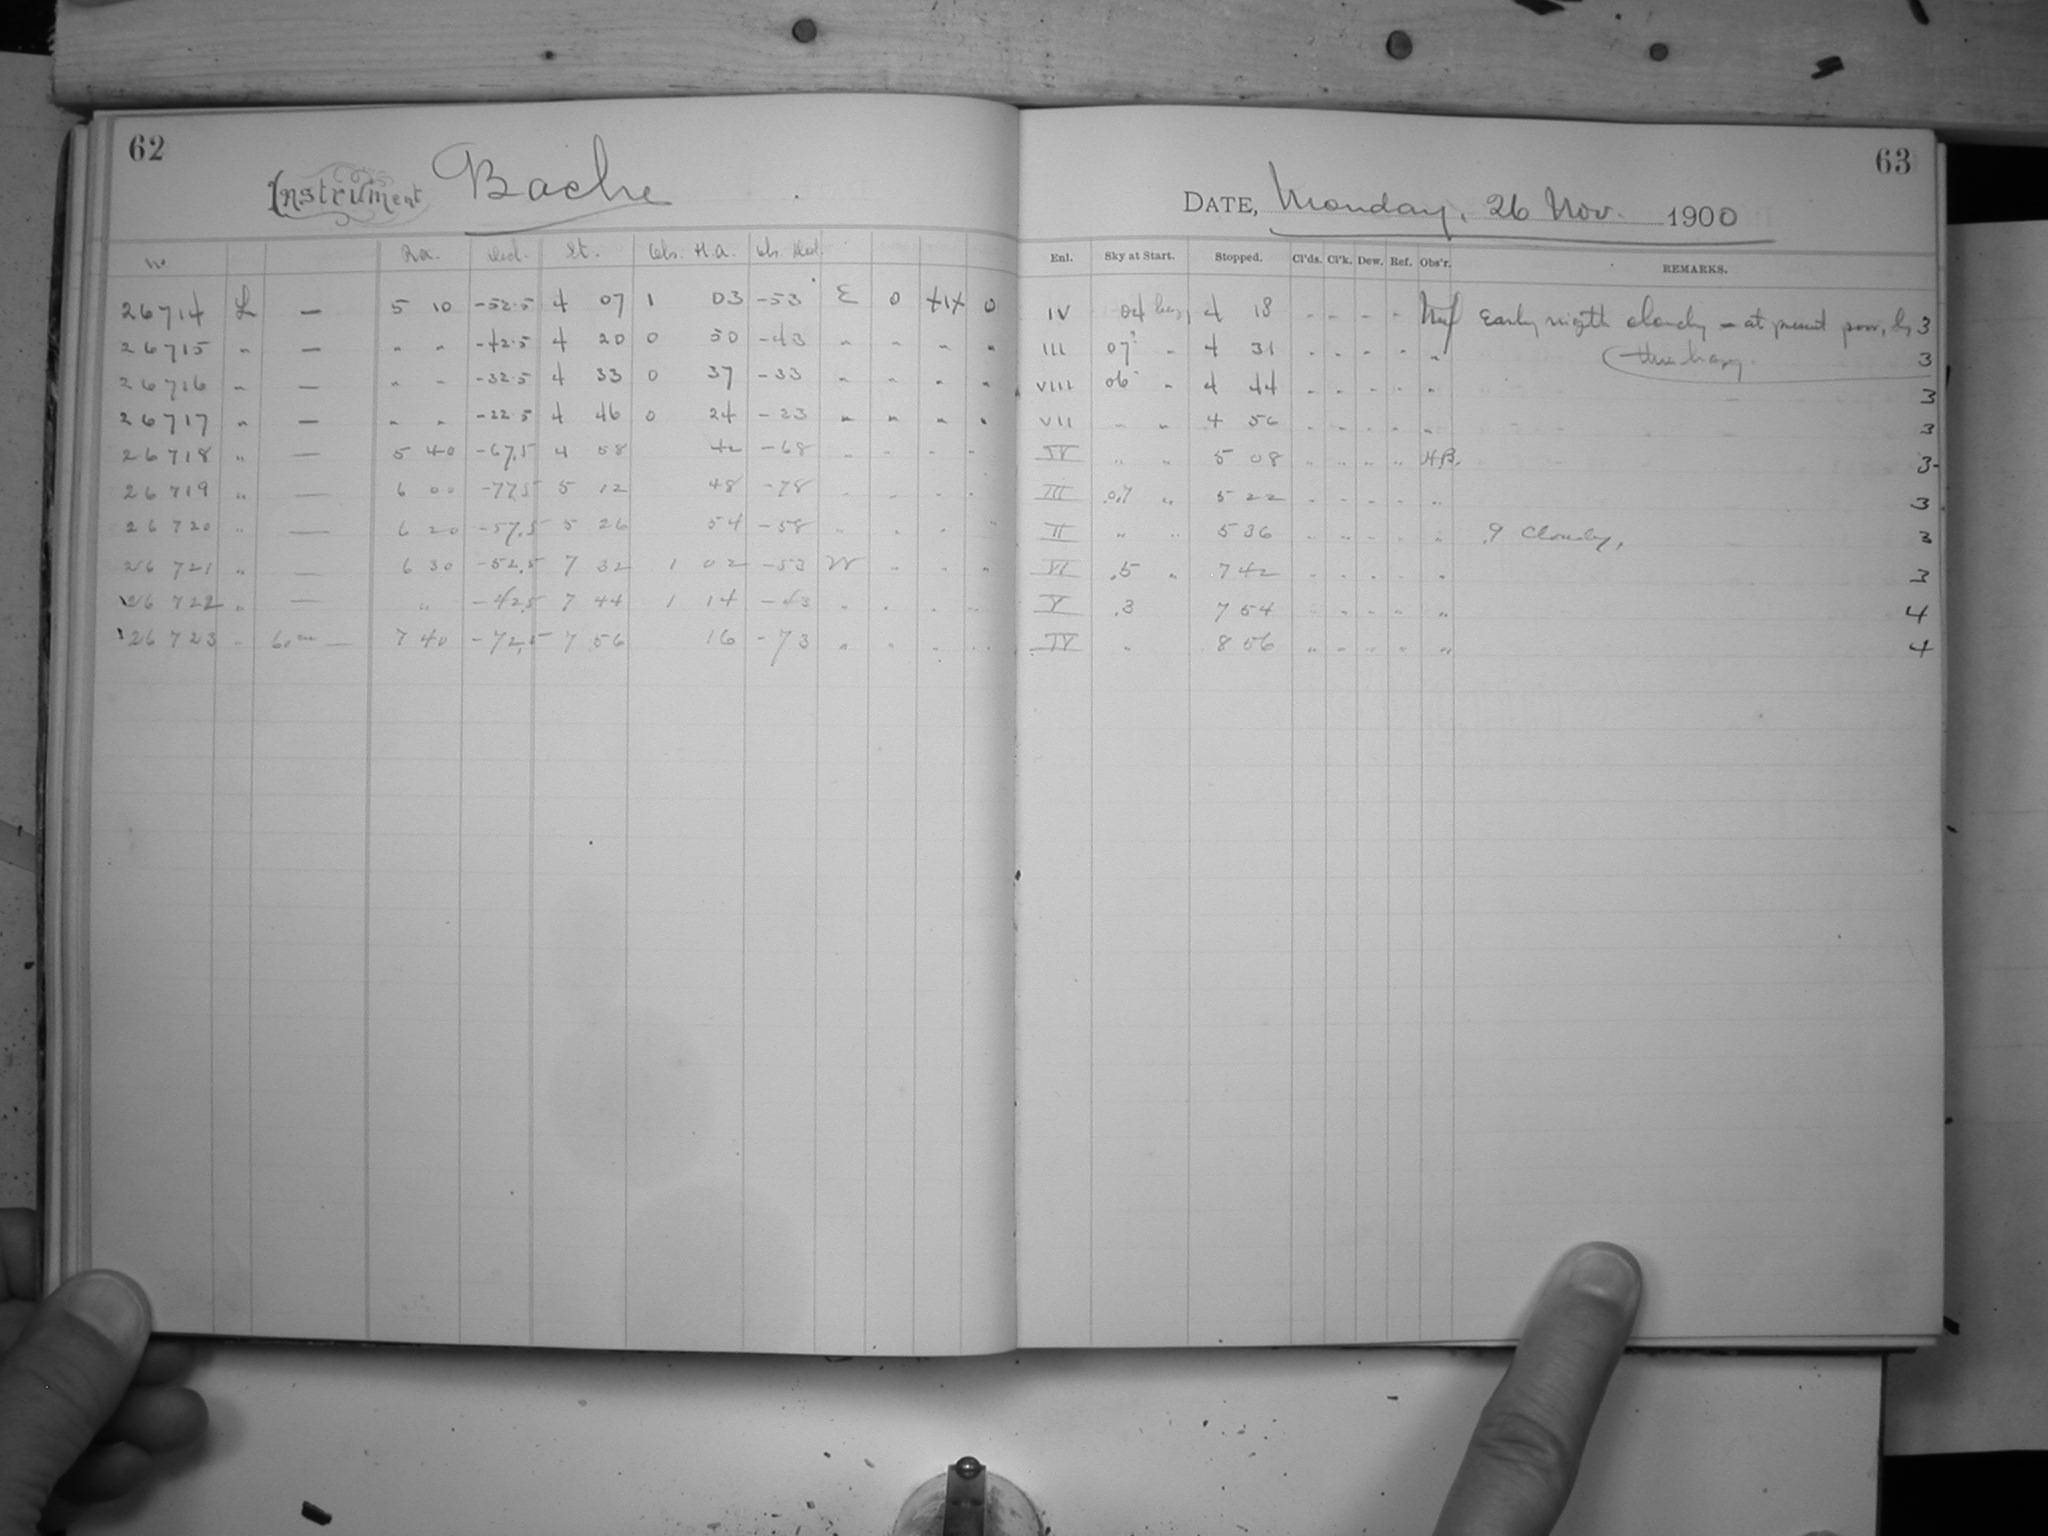 62
Instrument Bache
No R.A. Decl. St. Obs. H.A. Obs. Decl.
26714 L — 5 10 -52.5 4 07 1 03 -53 E 0 0
26715 " — " " -42.5 4 20 0 50 -43 " " " "
26716 " — " " -32.5 4 33 0 37 -33 " " " "
26717 " — " " -22.5 4 46 0 24 -23 " " " "
26718 " — 5 40 -67.5 4 58 42 -68 " " " "
26719 " — 6 00 -77.5 5 12 48 -78 " " " "
26720 " — 6 20 -57.5 5 26 54 -58 " " " "
26721 " — 6 30 -52.5 7 32 1 02 -53 W " " "
26722 " — " -42.5 7 44 1 14 -43 " " " "
26723 " 60m — 7 40 -72.5 7 56 16 -73 " " " "
63
DATE, Monday, 26 Nov. 1900
Enl. Sky at Start. Stopped. Cl'ds. Cl'k. Dew. Ref. Obs'r. REMARKS.
IV 04 hazy 4 18 - - - - Early nigth cloudy - at present poor, 3
III 07 " 4 31 - - - - " 3
VIII 06 " 4 44 - - - - " 3
VII " " 4 56 - - - - " 3
IV " " 5 08 " " " " HB. 3
III 0.7 " 5 22 " " " " " 3
II " " 5 36 " " " " " .9 Cloudy, 3
VI .5 " 7 42 " " " " " 3
V .3 7 54 " " " " " 4
IV " 8 56 " " " " " 4